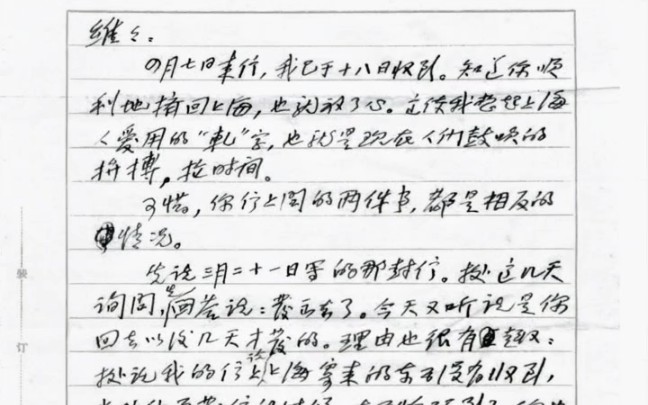 维々：
四月七日来信，我已于十八日收到。知道你顺
利地摘回上海，也就放了心。这使我想起上海
人爱用的“轧”字，也就是现在人们鼓吹的
拼搏，抢时间。
可惜，你信上问的两件事，都是相反的
情况。
先说三月二十一日写的那封信。我处这几天
询问，先回答说：发出去了。今天又听说是你
回去以后几天才发的。理由也很有趣：
我说我的信上说上海寄来的东西没有收到，
装
订